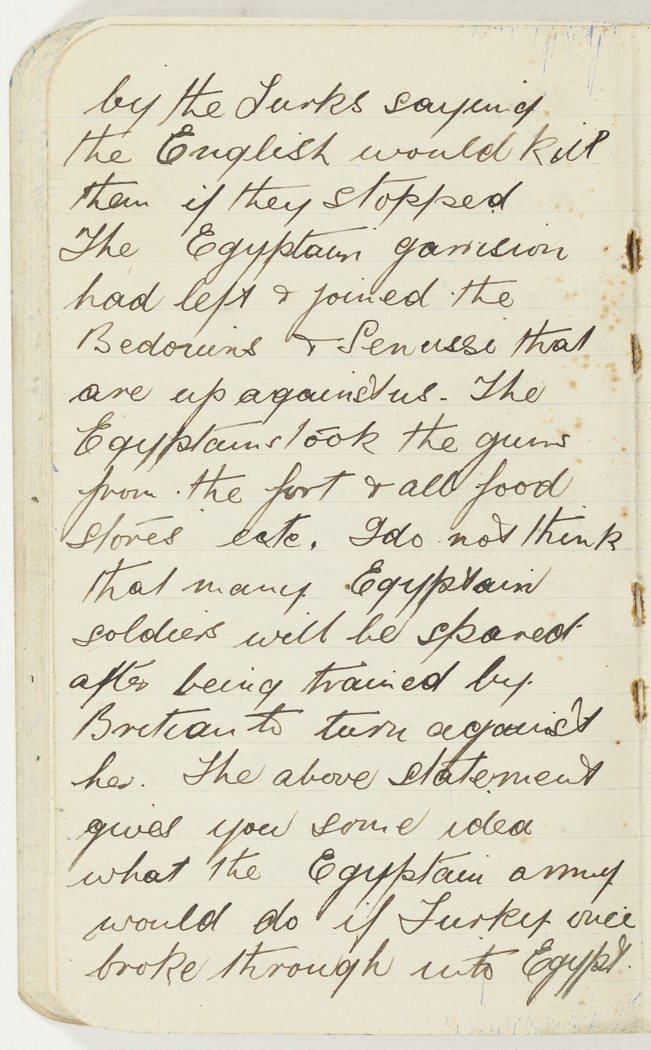 by the Turks saying
the English would kill
them if they stopped
The Egyptain garrision
had left & joined the
Bedouins & Senussi that
are up against us. The
Egyptains took the guns
from the fort & all food
stores ecte. I do not think
that many Egyptain
soldiers will be spared
after being trained by
Britian to turn against
her. The above statement
gives you some idea
what the Egyptain army
would do if Turkey once
broke through into Egypt.